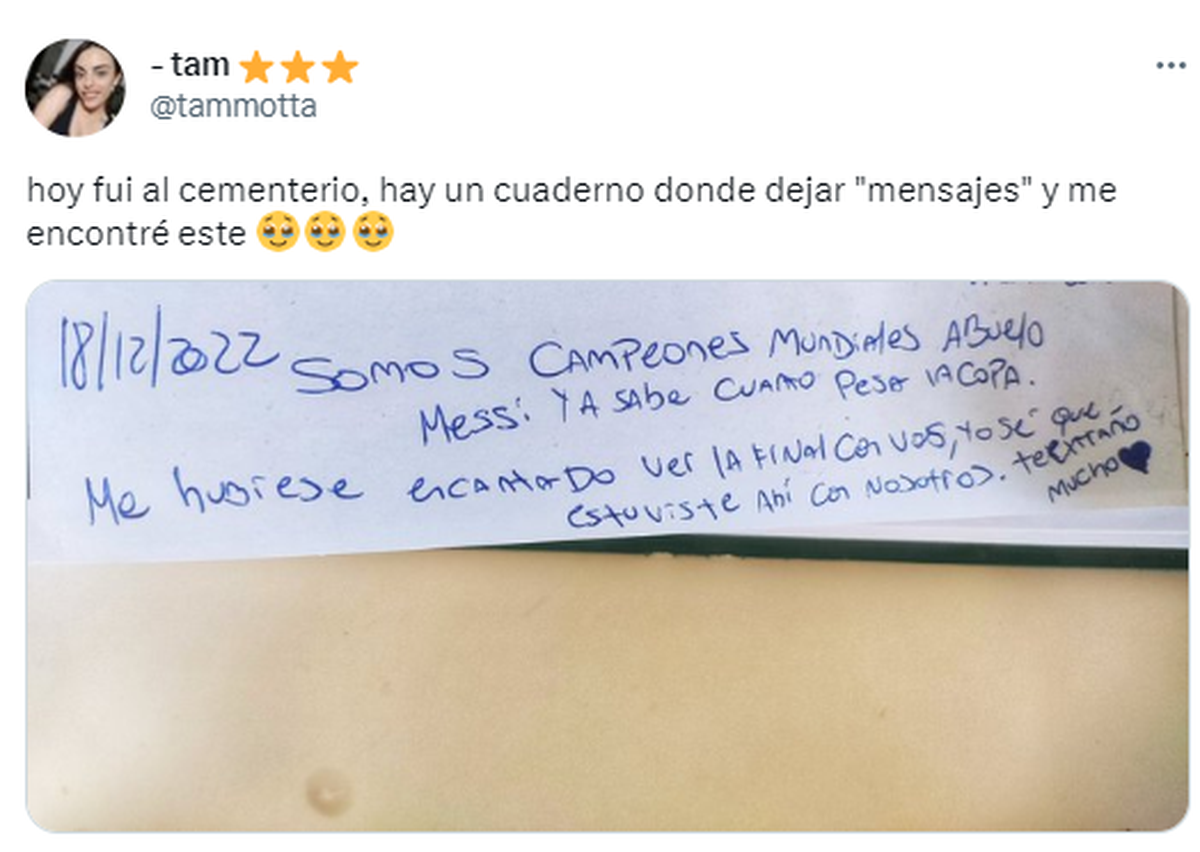 - tam ⭐⭐⭐
@tammotta
hoy fui al cementerio, hay un cuaderno donde dejar "mensajes" y me
encontré este 🥹🥹🥹
18/12/2022 SOMOS CAMPEONES MUNDIALES ABUELO
Messi YA SABE CUANTO PESA LA COPA.
Me hubiese encantado ver LA FINAL CON VOS, YO SÉ que
estuviste Ahí Con Nosotros. te EXTRAÑO
MUCHO♥